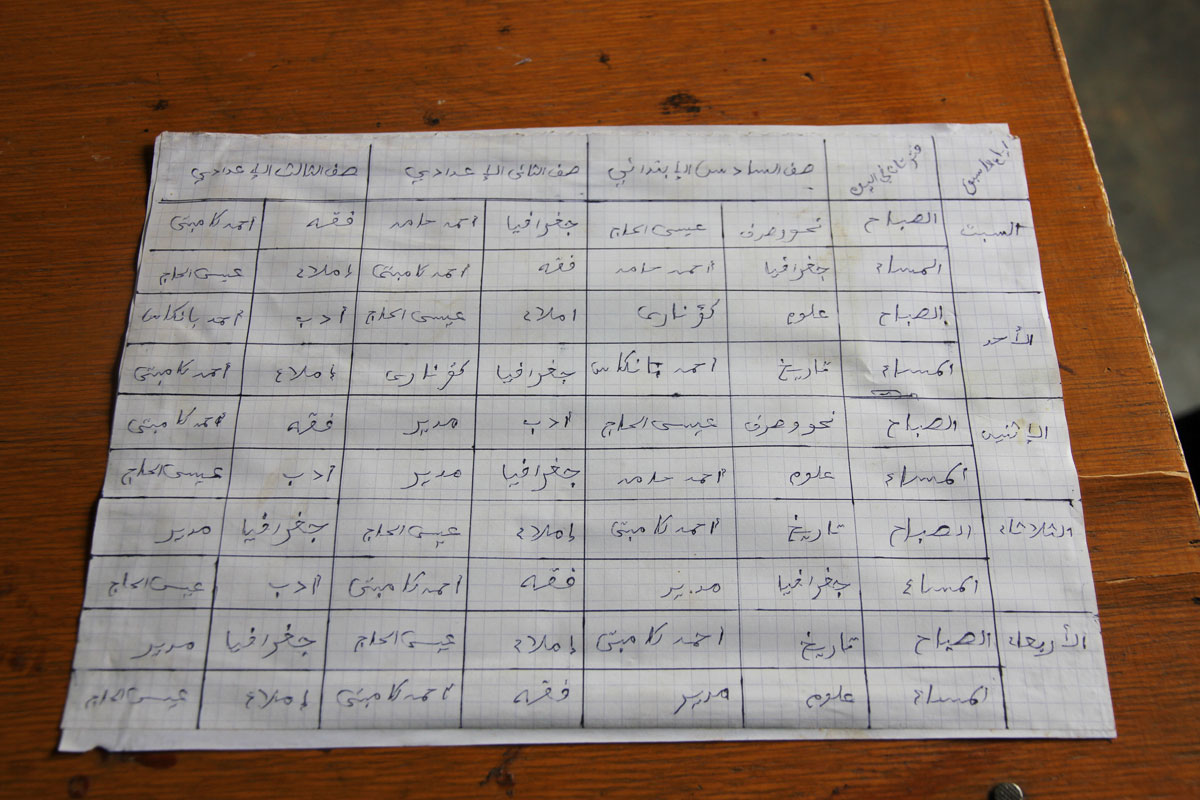 أيام الأسبوع فترتا في اليوم صف السادس الإبتدائي صف الثاني الإعدادي صف الثالث الإعدادي
السبت الصباح نحو وصرف عيسى الحاج جغرافيا احمد حامد فقه احمد كامبتي
المساء جغرافيا أحمد حامد فقه أحمد كامبتي إملاء عيسى الحاج
الأحد الصباح علوم كوناري املاء عيسى الحاج أدب أحمد بانكاس
المساء تاريخ احمد بانكاس جغرافيا كوناري إملاء أحمد كامبتي
الإثنين الصباح نحو وصرف عيسى الحاج ادب مدير فقه أحمد كامبتي
المساء علوم أحمد حامد جغرافيا مدير أدب عيسى الحاج
الثلاثاء الصباح تاريخ أحمد كامبتي إملاء عيسى الحاج جغرافيا مدير
المساء جغرافيا مدير فقه احمد كامبتي ادب عيسى الحاج
الأربعاء الصباح تاريخ احمد كامبتي إملاء عيسى الحاج جغرافيا مدير
المساء علوم مدير فقه أحمد كامبتي إملاء عيسى الحاج